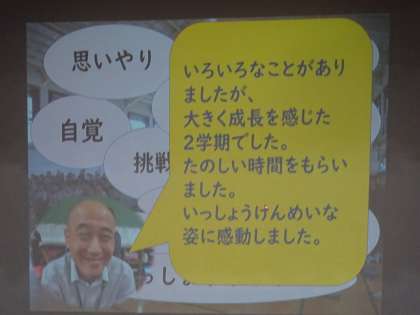 思いやり
自覚
挑戦
いろいろなことがあり
ましたが、
大きく成長を感じた
2学期でした。
たのしい時間をもらい
ました。
いっしょうけんめいな
姿に感動しました。